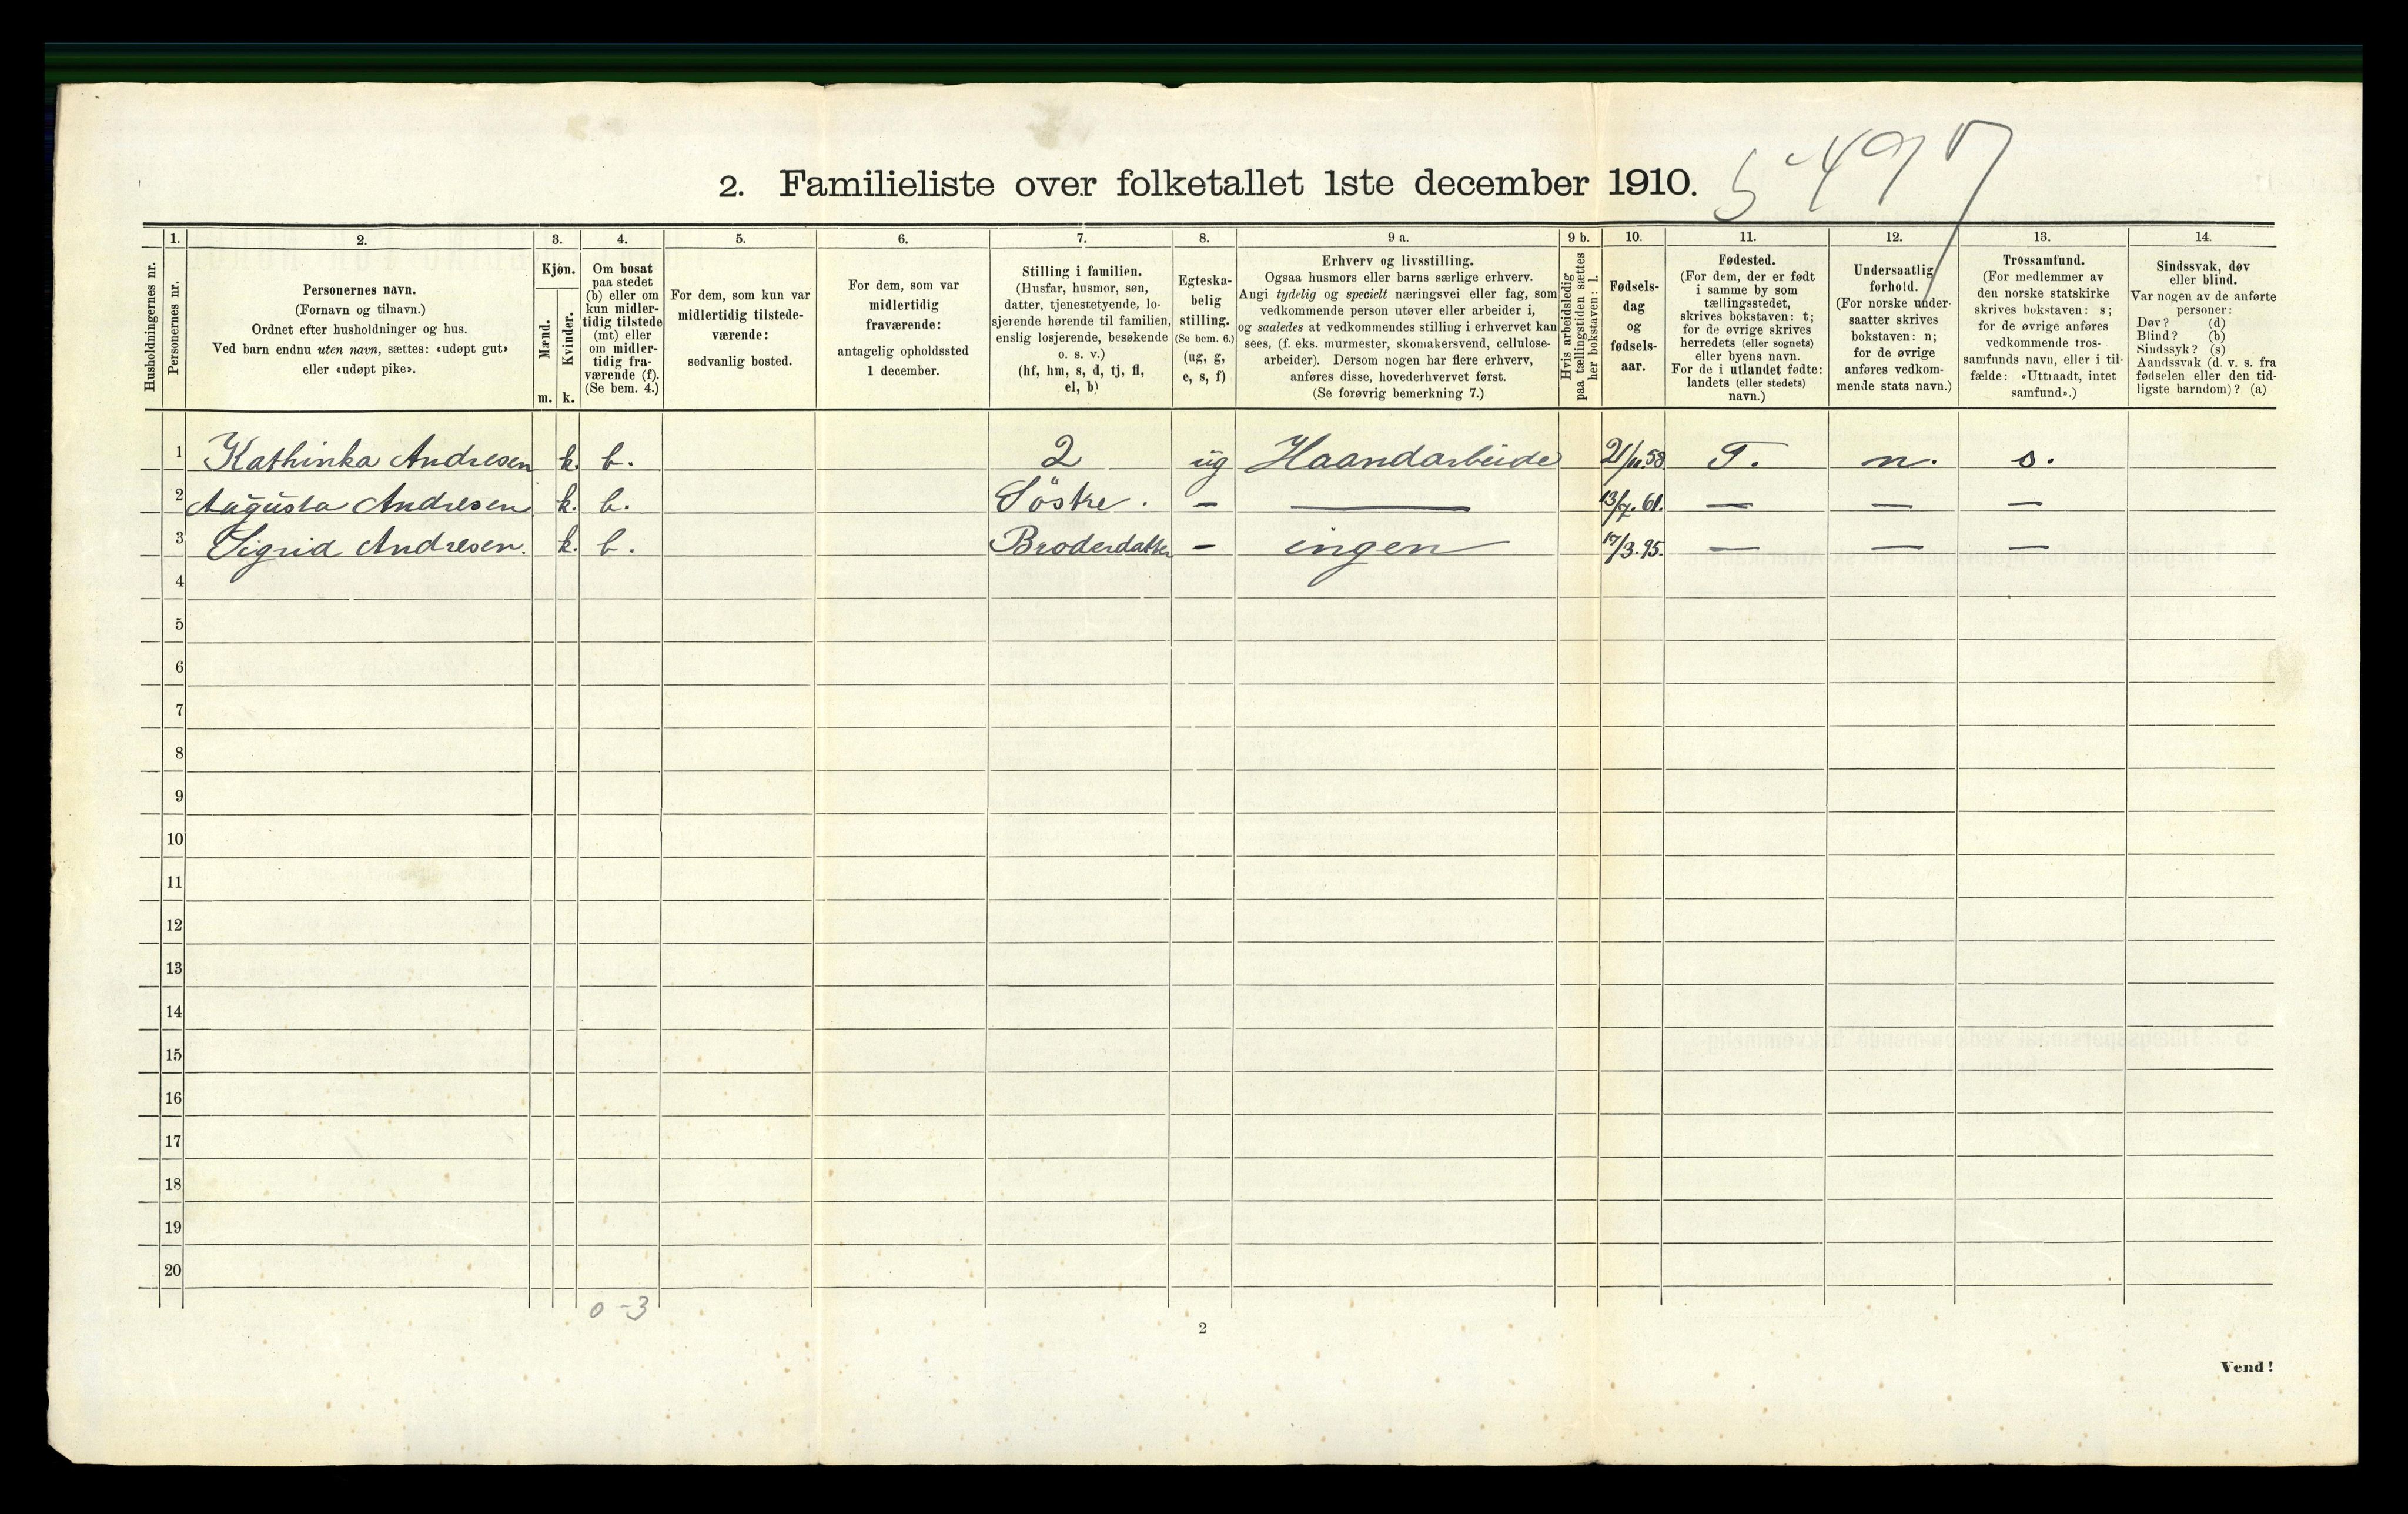 5497
2. Familieliste over folketallet 1ste december 1910.
Husholdningernes nr.
1. Personernes nr.
2. Personernes navn.
(Fornavn og tilnavn.)
Ordnet efter husholdninger og hus.
Ved barn endnu uten navn, sættes: «udøpt gut»
eller «udøpt pike».
3. Kjøn.
Mænd. m.
Kvinder. k.
4. Om bosat
paa stedet
(b) eller om
kun midler-
tidig tilstede
(mt) eller
om midler-
tidig fra-
værende (f).
(Se bem. 4.)
5. For dem, som kun var
midlertidig tilstede-
værende:
sedvanlig bosted.
6. For dem, som var
midlertidig
fraværende:
antagelig opholdssted
1 december.
7. Stilling i familien.
(Husfar, husmor, søn,
datter, tjenestetyende, lo-
sjerende hørende til familien,
enslig losjerende, besøkende
o. s. v.)
(hf, hm, s, d, tj, fl,
el, b)
8. Egteska-
belig
stilling.
(Se bem. 6.)
(ug, g,
e, s, f)
9 a. Erhverv og livsstilling.
Ogsaa husmors eller barns særlige erhverv.
Angi tydelig og specielt næringsvei eller fag, som
vedkommende person utøver eller arbeider i,
og saaledes at vedkommendes stilling i erhvervet kan
sees, (f. eks. murmester, skomakersvend, cellulose-
arbeider). Dersom nogen har flere erhverv,
anføres disse, hovederhvervet først.
(Se forøvrig bemerkning 7.)
9 b. Hvis arbeidsledig
paa tællingstiden sættes
her bokstaven: l.
10. Fødsels-
dag
og
fødsels-
aar.
11. Fødested.
(For dem, der er født
i samme by som
tællingsstedet,
skrives bokstaven: t;
for de øvrige skrives
herredets (eller sognets)
eller byens navn.
For de i utlandet fødte:
landets (eller stedets)
navn.)
12. Undersaatlig
forhold.
(For norske under-
saatter skrives
bokstaven: n;
for de øvrige
anføres vedkom-
mende stats navn.)
13. Trossamfund.
(For medlemmer av
den norske statskirke
skrives bokstaven: s;
for de øvrige anføres
vedkommende tros-
samfunds navn, eller i til-
fælde: «Uttraadt, intet
samfund».)
14. Sindssvak, døv
eller blind.
Var nogen av de anførte
personer:
Døv? (d)
Blind? (b)
Sindssyk? (s)
Aandssvak (d. v. s. fra
fødselen eller den tid-
ligste barndom)? (a)
1 Kathinka Andresen k. b. 2 ug Haandarbeide 21/11.58 T. n. s.
2 Augusta Andresen k. b. Söstre. — — 13/7.61. — — —
3 Sigrid Andresen. k. b. Broderdatter — ingen 17/3.95. — — —
4
5
6
7
8
9
10
11
12
13
14
15
16
17
18
19
20
0 -3
2
Vend!